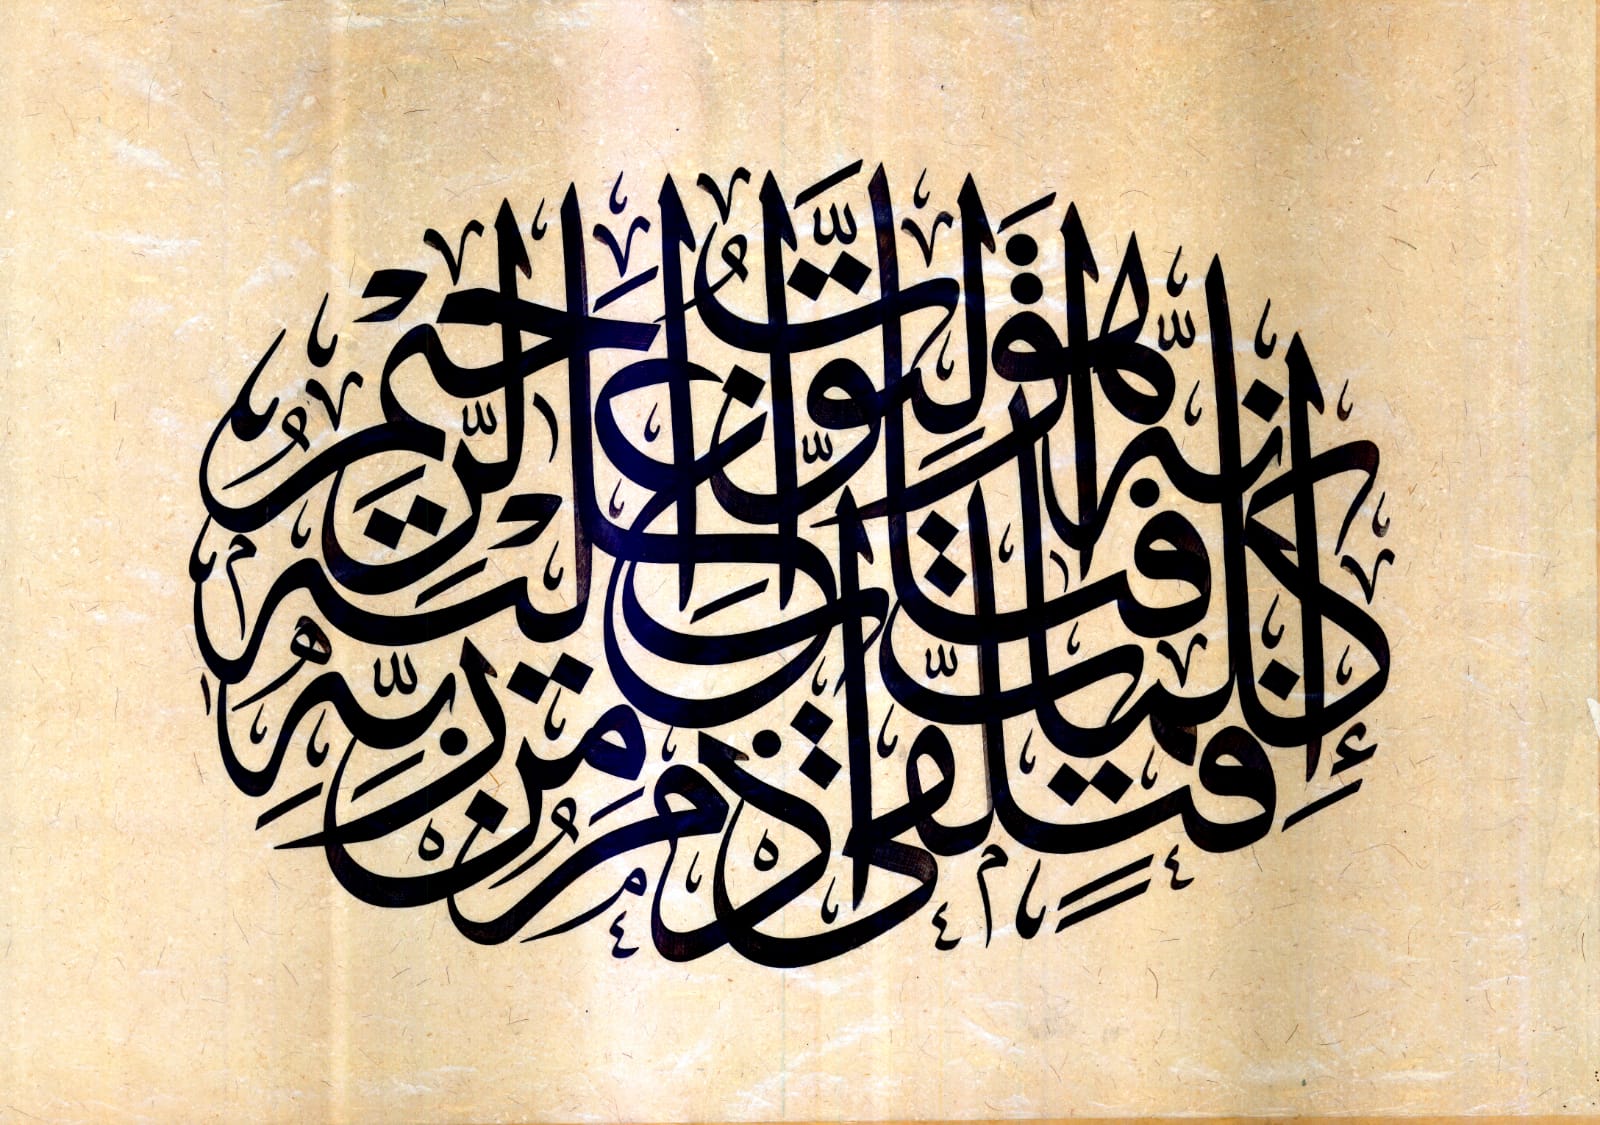 فَتَلَقَّىٰ آدَمُ مِنْ رَبِّهِ
كَلِمَاتٍ فَتَابَ عَلَيْهِ
إِنَّهُ هُوَ التَّوَّابُ الرَّحِيمُ